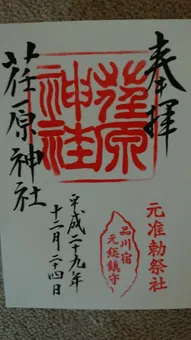 奉拝
元准勅祭社
荏原神社
品川宿
元総鎮守
平成二十九年
十二月二十四日
荏原神社